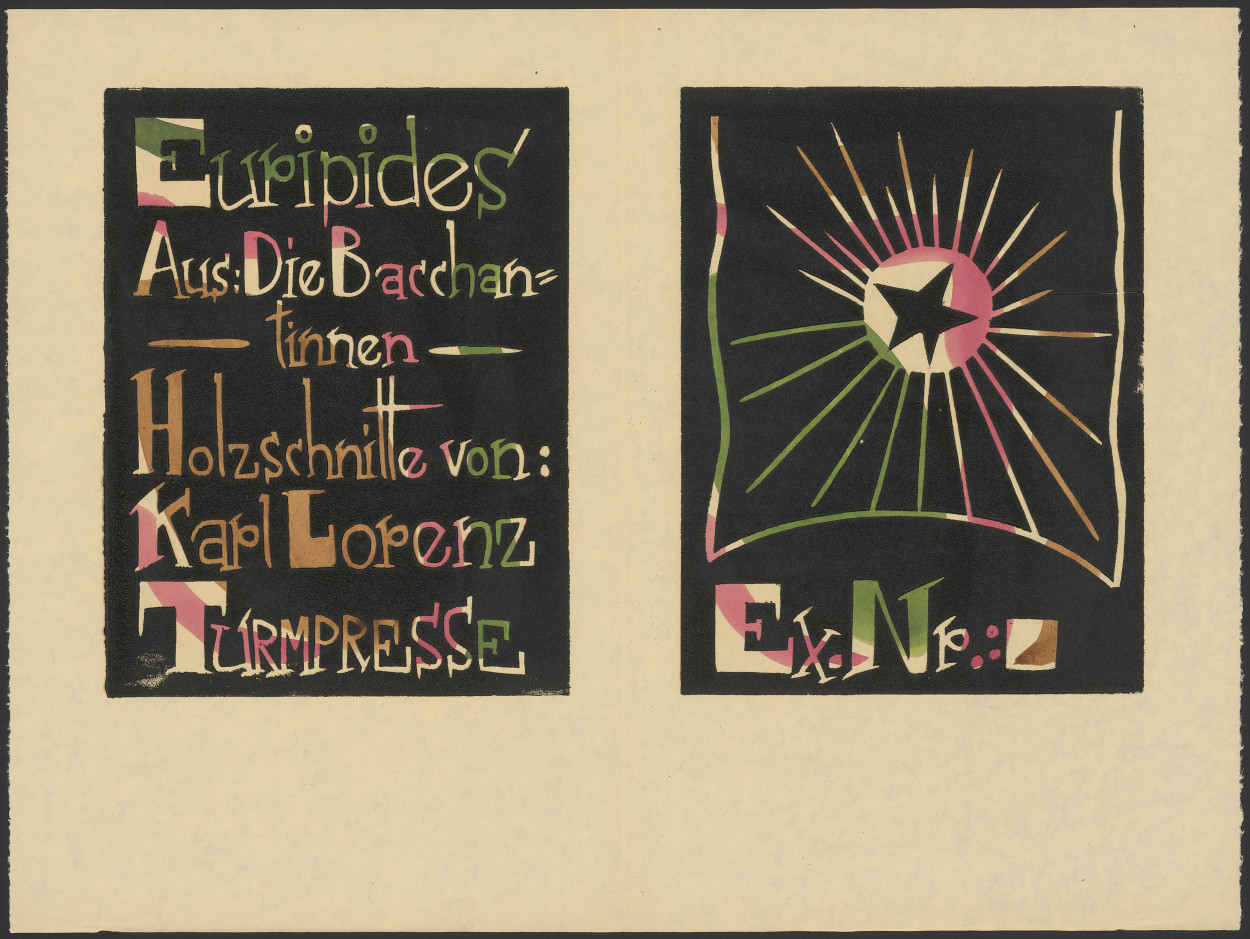 Euripides
Aus: Die Bacchan=
tinnen
Holzschnitte von:
Karl Lorenz
TURMPRESSE
Ex. Nr.: